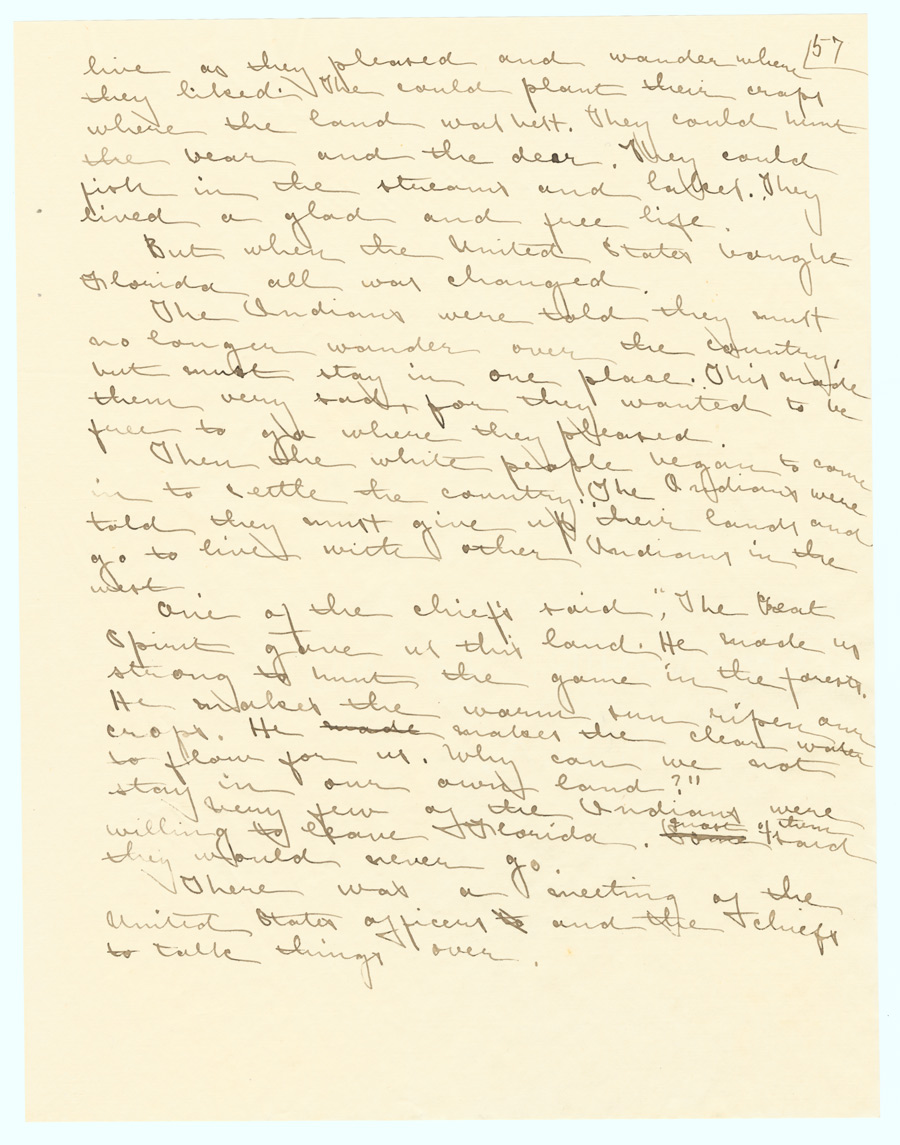 157
live as they pleased and wander where
they liked. The could plant their crops
where the land was best. They could hunt
the bear and the deer. They could
fish in the streams and lakes. They
lived a glad and free life.
But when the United States bought
Florida all was changed.
The Indians were told they must
no longer wander over the country,
but must stay in one place. This made
them very sad, for they wanted to be
free to go where they pleased.
Then the white people began to come
in to settle the country. The Indians were
told they must give up their lands and
go to live with other Indians in the
west
One of the chiefs said, "The Great
Spirit gave us this land. He made us
strong to hunt the game in the forests.
He makes the warm sun ripen our
crops. He made makes the clear water
to flow for us. Why can we not
stay in our own land?"
Very few of the Indians were
willing to leave Florida. Some most of them said
they would never go.
There was a meeting of the
United States officers to and the chiefs
to talk things over.